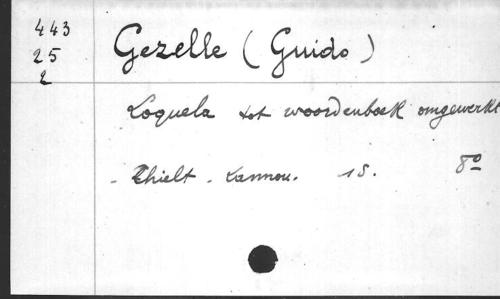 443
25
2
Gezelle (Guido)
Loquela tot woordenboek omgewerkt
- Thielt - Lannoo. 1 S. 8º